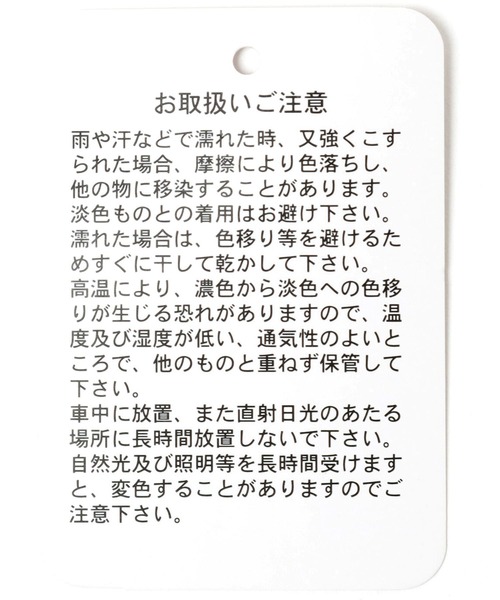 お取扱いご注意
雨や汗などで濡れた時、又強くこす
られた場合、摩擦により色落ちし、
他の物に移染することがあります。
淡色ものとの着用はお避け下さい。
濡れた場合は、色移り等を避けるた
めすぐに干して乾かして下さい。
高温により、濃色から淡色への色移
りが生じる恐れがありますので、温
度及び湿度が低い、通気性のよいと
ころで、他のものと重ねず保管して
下さい。
車中に放置、また直射日光のあたる
場所に長時間放置しないで下さい。
自然光及び照明等を長時間受けます
と、変色することがありますのでご
注意下さい。